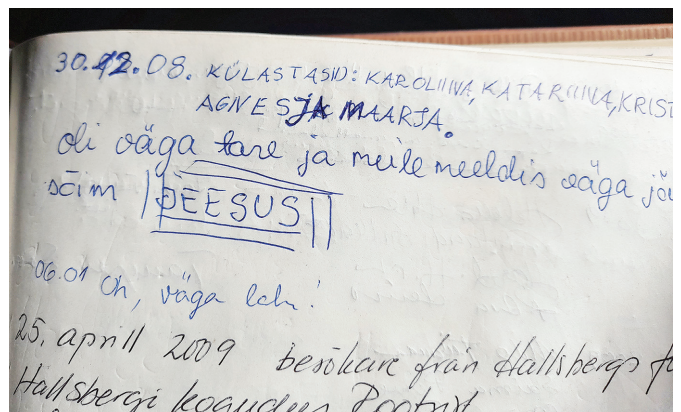 30.12.08. KÜLASTASID: KAROLIINA, KATARIINA, KRIST
AGNES JA MAARJA.
oli väga tare ja meile meeldis väga jõu
sõim JEESUS
06.01 Oh, väga lahe!
25. aprill 2009 besökare från Hallsbergs f
Hallsbergi koguduse Rootsist